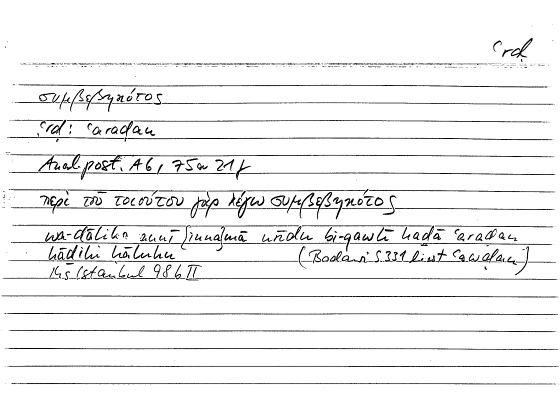 ʿrḍ
συμβεβηκότος
ʿrḍ: ʿaraḍan
Anal. post. A6, 75a 21f
περὶ τοῦ τοιούτου γὰρ λέγω συμβεβηκότος
wa-ḏālika annī [innamā] urīdu bi-qawlī hāḏā ʿaraḍan
hāḏihi ḥāluhu (Badawī S. 331 liest ʿawāḍan)
Hs Istanbul 98b II